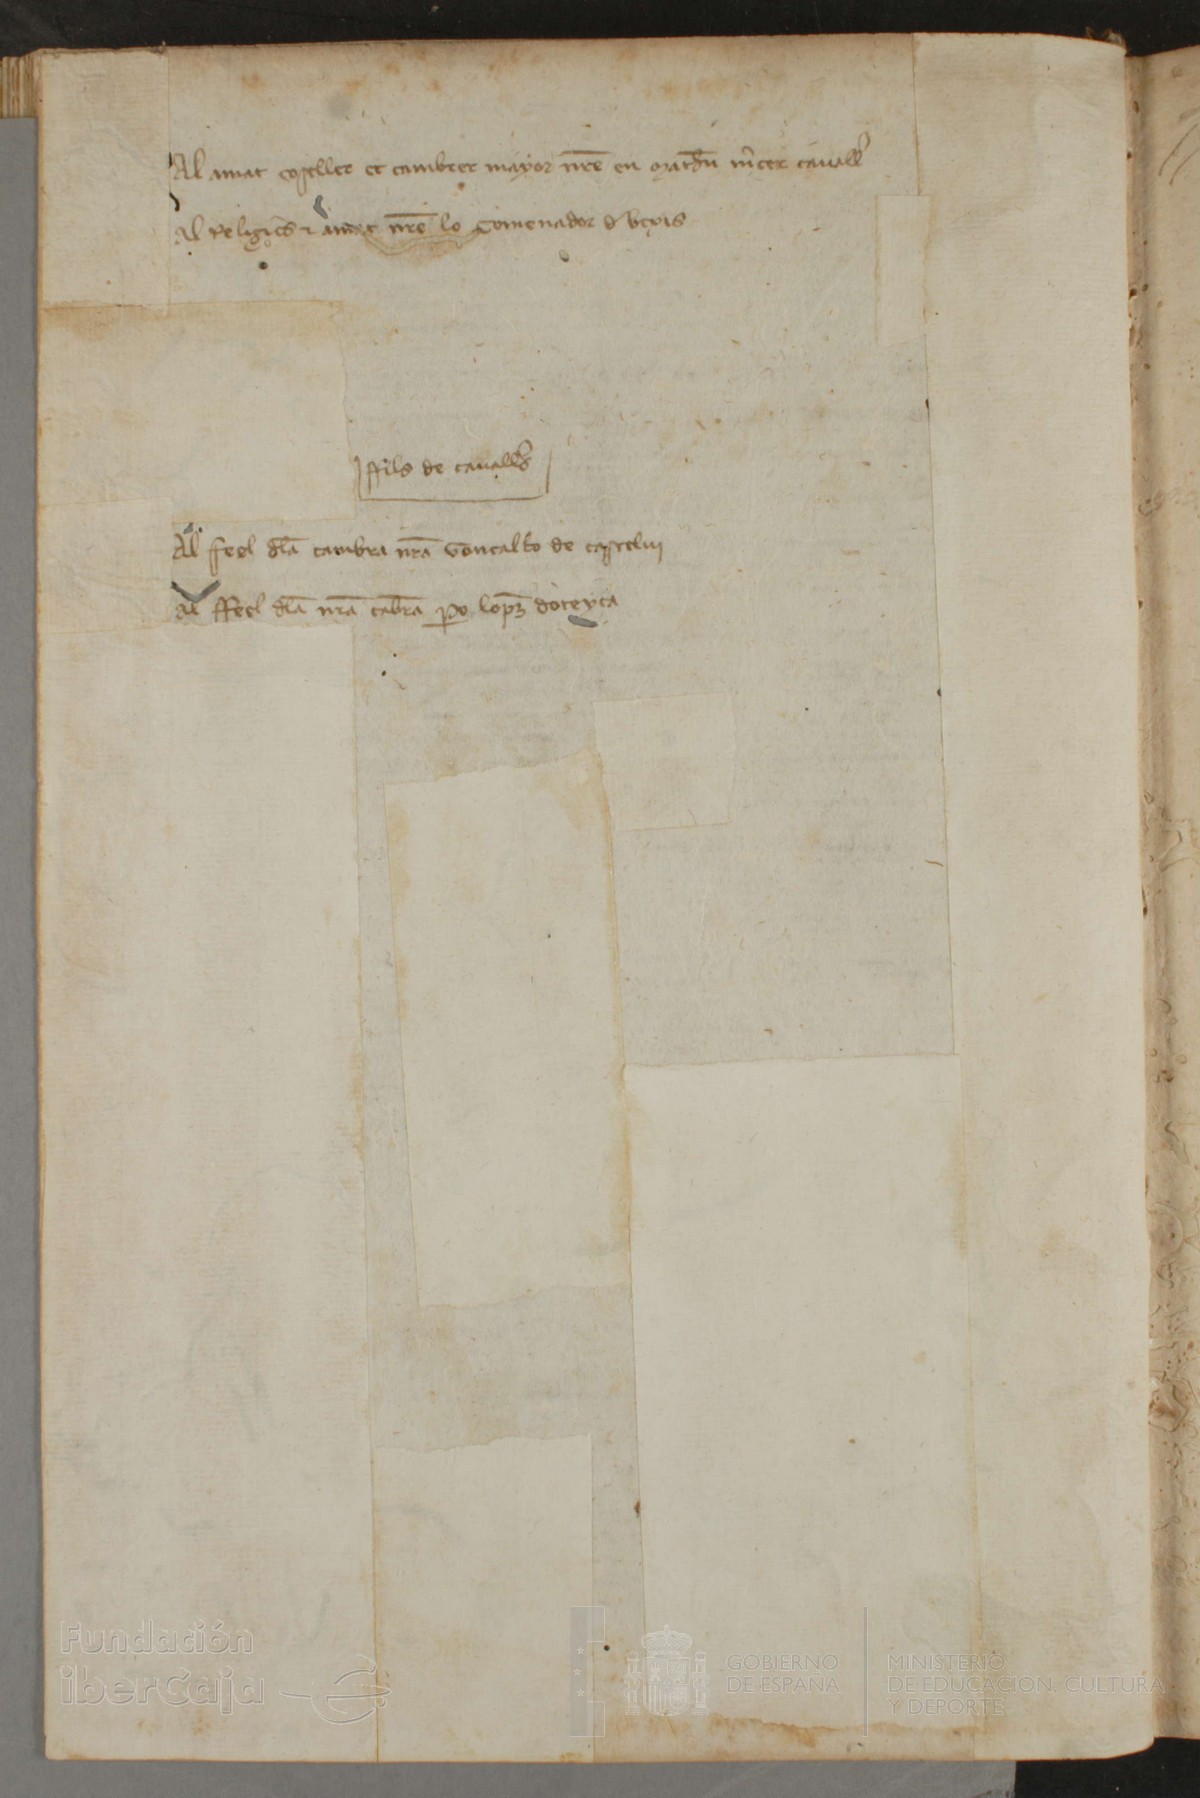 Al amat conseller et cambrer mayor nr̃e en m̃cer cauall̃
Al religiõs ⁊ amat nr̃e lo Comenador d bexis
ffils de cauall̃s
Al feel dl̃a cambra nr̃a de castelui
Al ffeel dl̃a nr̃a cãbra po lopz̃ doteyca
Fundación
iberCaja
GOBIERNO
DE ESPAÑA
MINISTERIO
DE EDUCACIÓN, CULTURA
Y DEPORTE